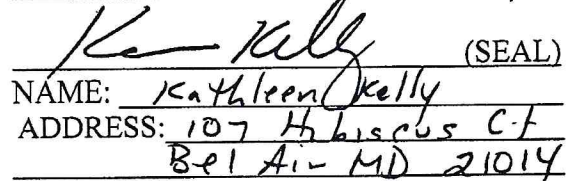 Kelly (SEAL)
NAME: Kathleen Kelly
ADDRESS: 107 Hibiscus Ct
Bel Air MD 21014